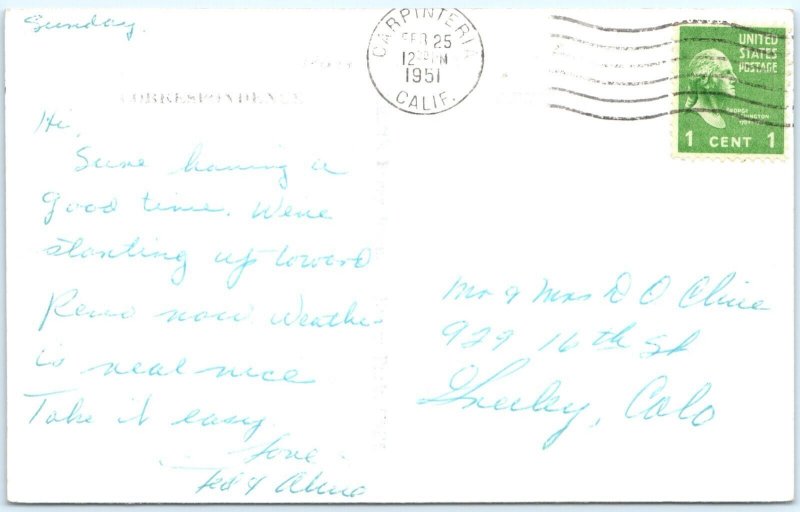 Sunday.
CARPINTERIA
FEB 25
1951
CALIF.
UNITED
STATES
POSTAGE
GEORGE
WASHINGTON
1 CENT 1
CORRESPONDENCE
Hi,
Sure having a
good time. We're
starting up toward
Reno now Weather
is real nice
Take it easy.
Love
Mr & Mrs D O Cline
929 16th St
Greeley, Colo